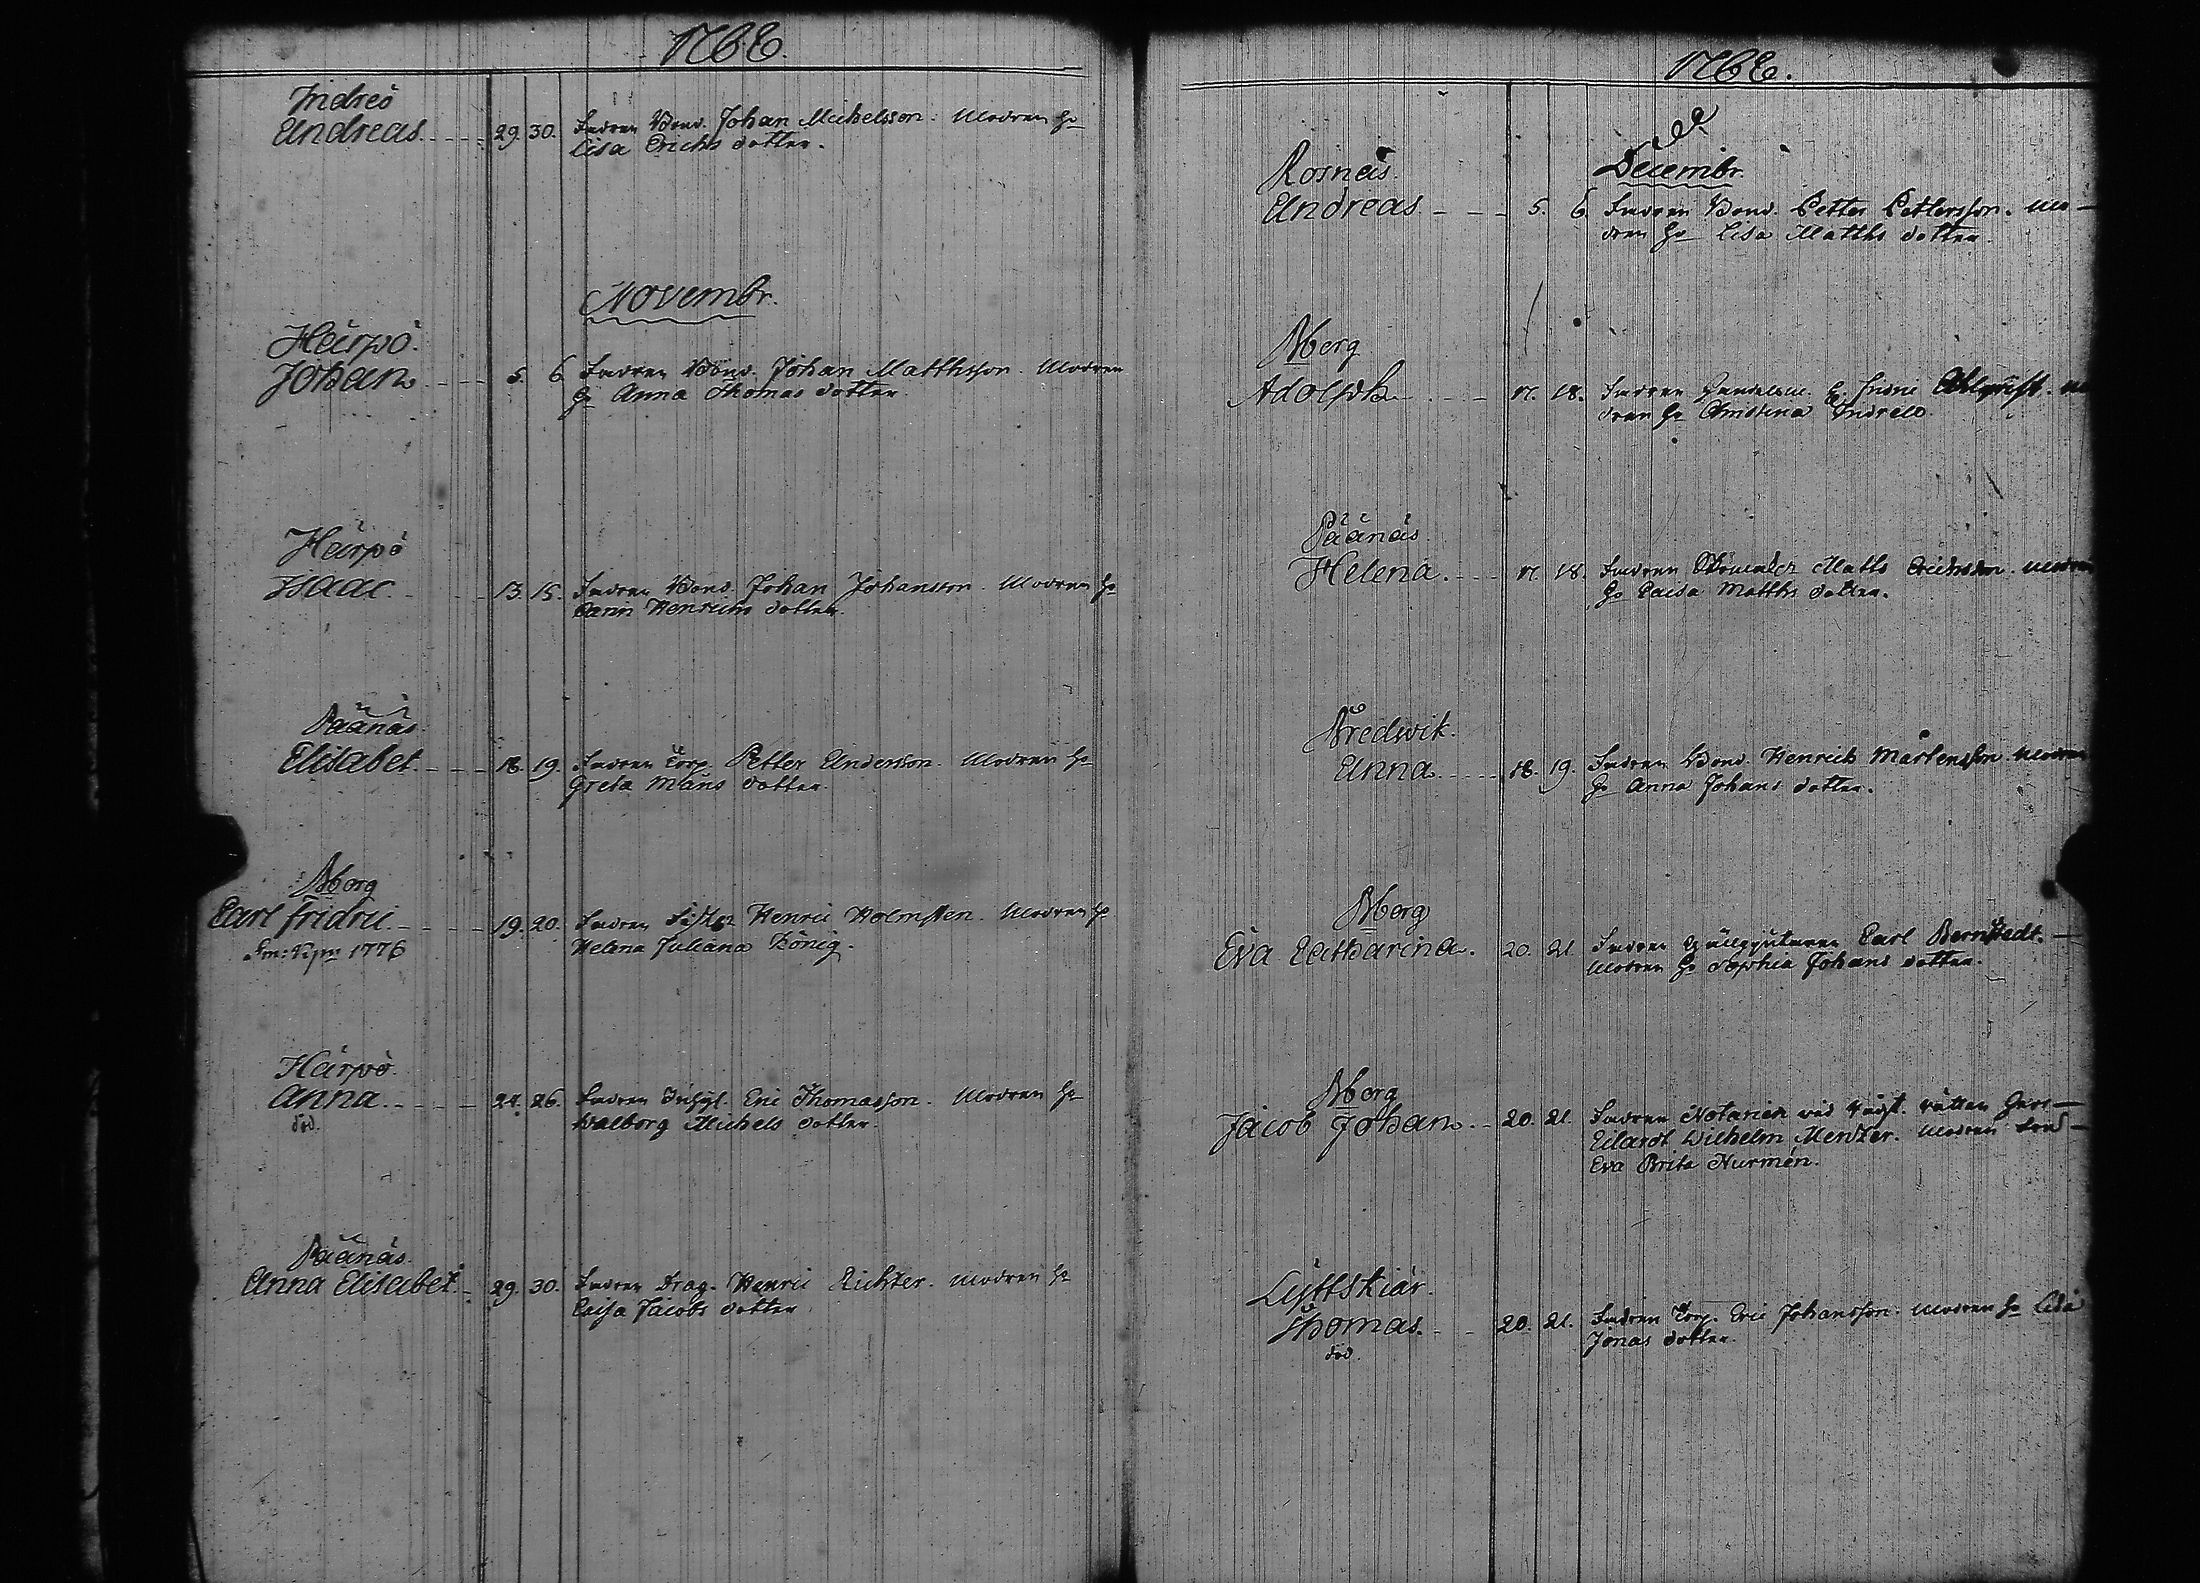 1762.
Indreö
Andreas 29. 30. Fadren Bond. Johan Michelsson. Modren H:
Lisa Erichs dotter.
Novembr.
Härpö.
Johan 5. 6. Fadren Bond. Johan Matthsson. Modren
H: Anna Thomas dotter.
Härpö
Isaac 13. 15. Fadren Bond. Johan Johansson. Modren H:
Carin Henrichs dotter.
Påånäs.
Elisabet 18. 19. Fadren Torp. Petter Andersson. Modren H:
Greta Måns dotter.
Nborg
Carl Fridric 19. 20. Fadren Henric Holmsten. Modren H:
1776 Helena Juliana König.
Härpö.
Anna 24. 26. Fadren Eric Thomasson. Modren H:
död. Walborg Michels dotter.
Påånäs.
Anna Elisabet. 29. 30. Fadren Drag. Henric Richter. Modren H:
Caisa Jacobs dotter.
1762.
Decembr.
Rosnäs.
Andreas 5. 6. Fadren Bond. Petter Pettersson. Mo-
dren H: Lisa Matths dotter.
Nborg
Adolph 17. 18. Fadren
dren H: Christina
Påånäs.
Helena. 17. 18. Fadren Matts Erichsson. Modren
H: Caisa Matths dotter.
Bredwik.
Anna 18. 19. Fadren Bond. Henrich Mårtensson. Modren
H: Anna Johans dotter.
Nborg
Eva Catharina. 20. 21. Fadren Carl Bernstedt.
Modren H: Sophia Johans dotter.
Nborg
Jacob Johan 20. 21. Fadren Notarien wid rätten Herr
Wilhelm Mentzer. Modren Fru
Eva Brita Nurmén.
Lyttskiär.
Thomas. 20. 21. Fadren Torp. Eric Johansson. Modren H: Lisa
död. Jonas dotter.